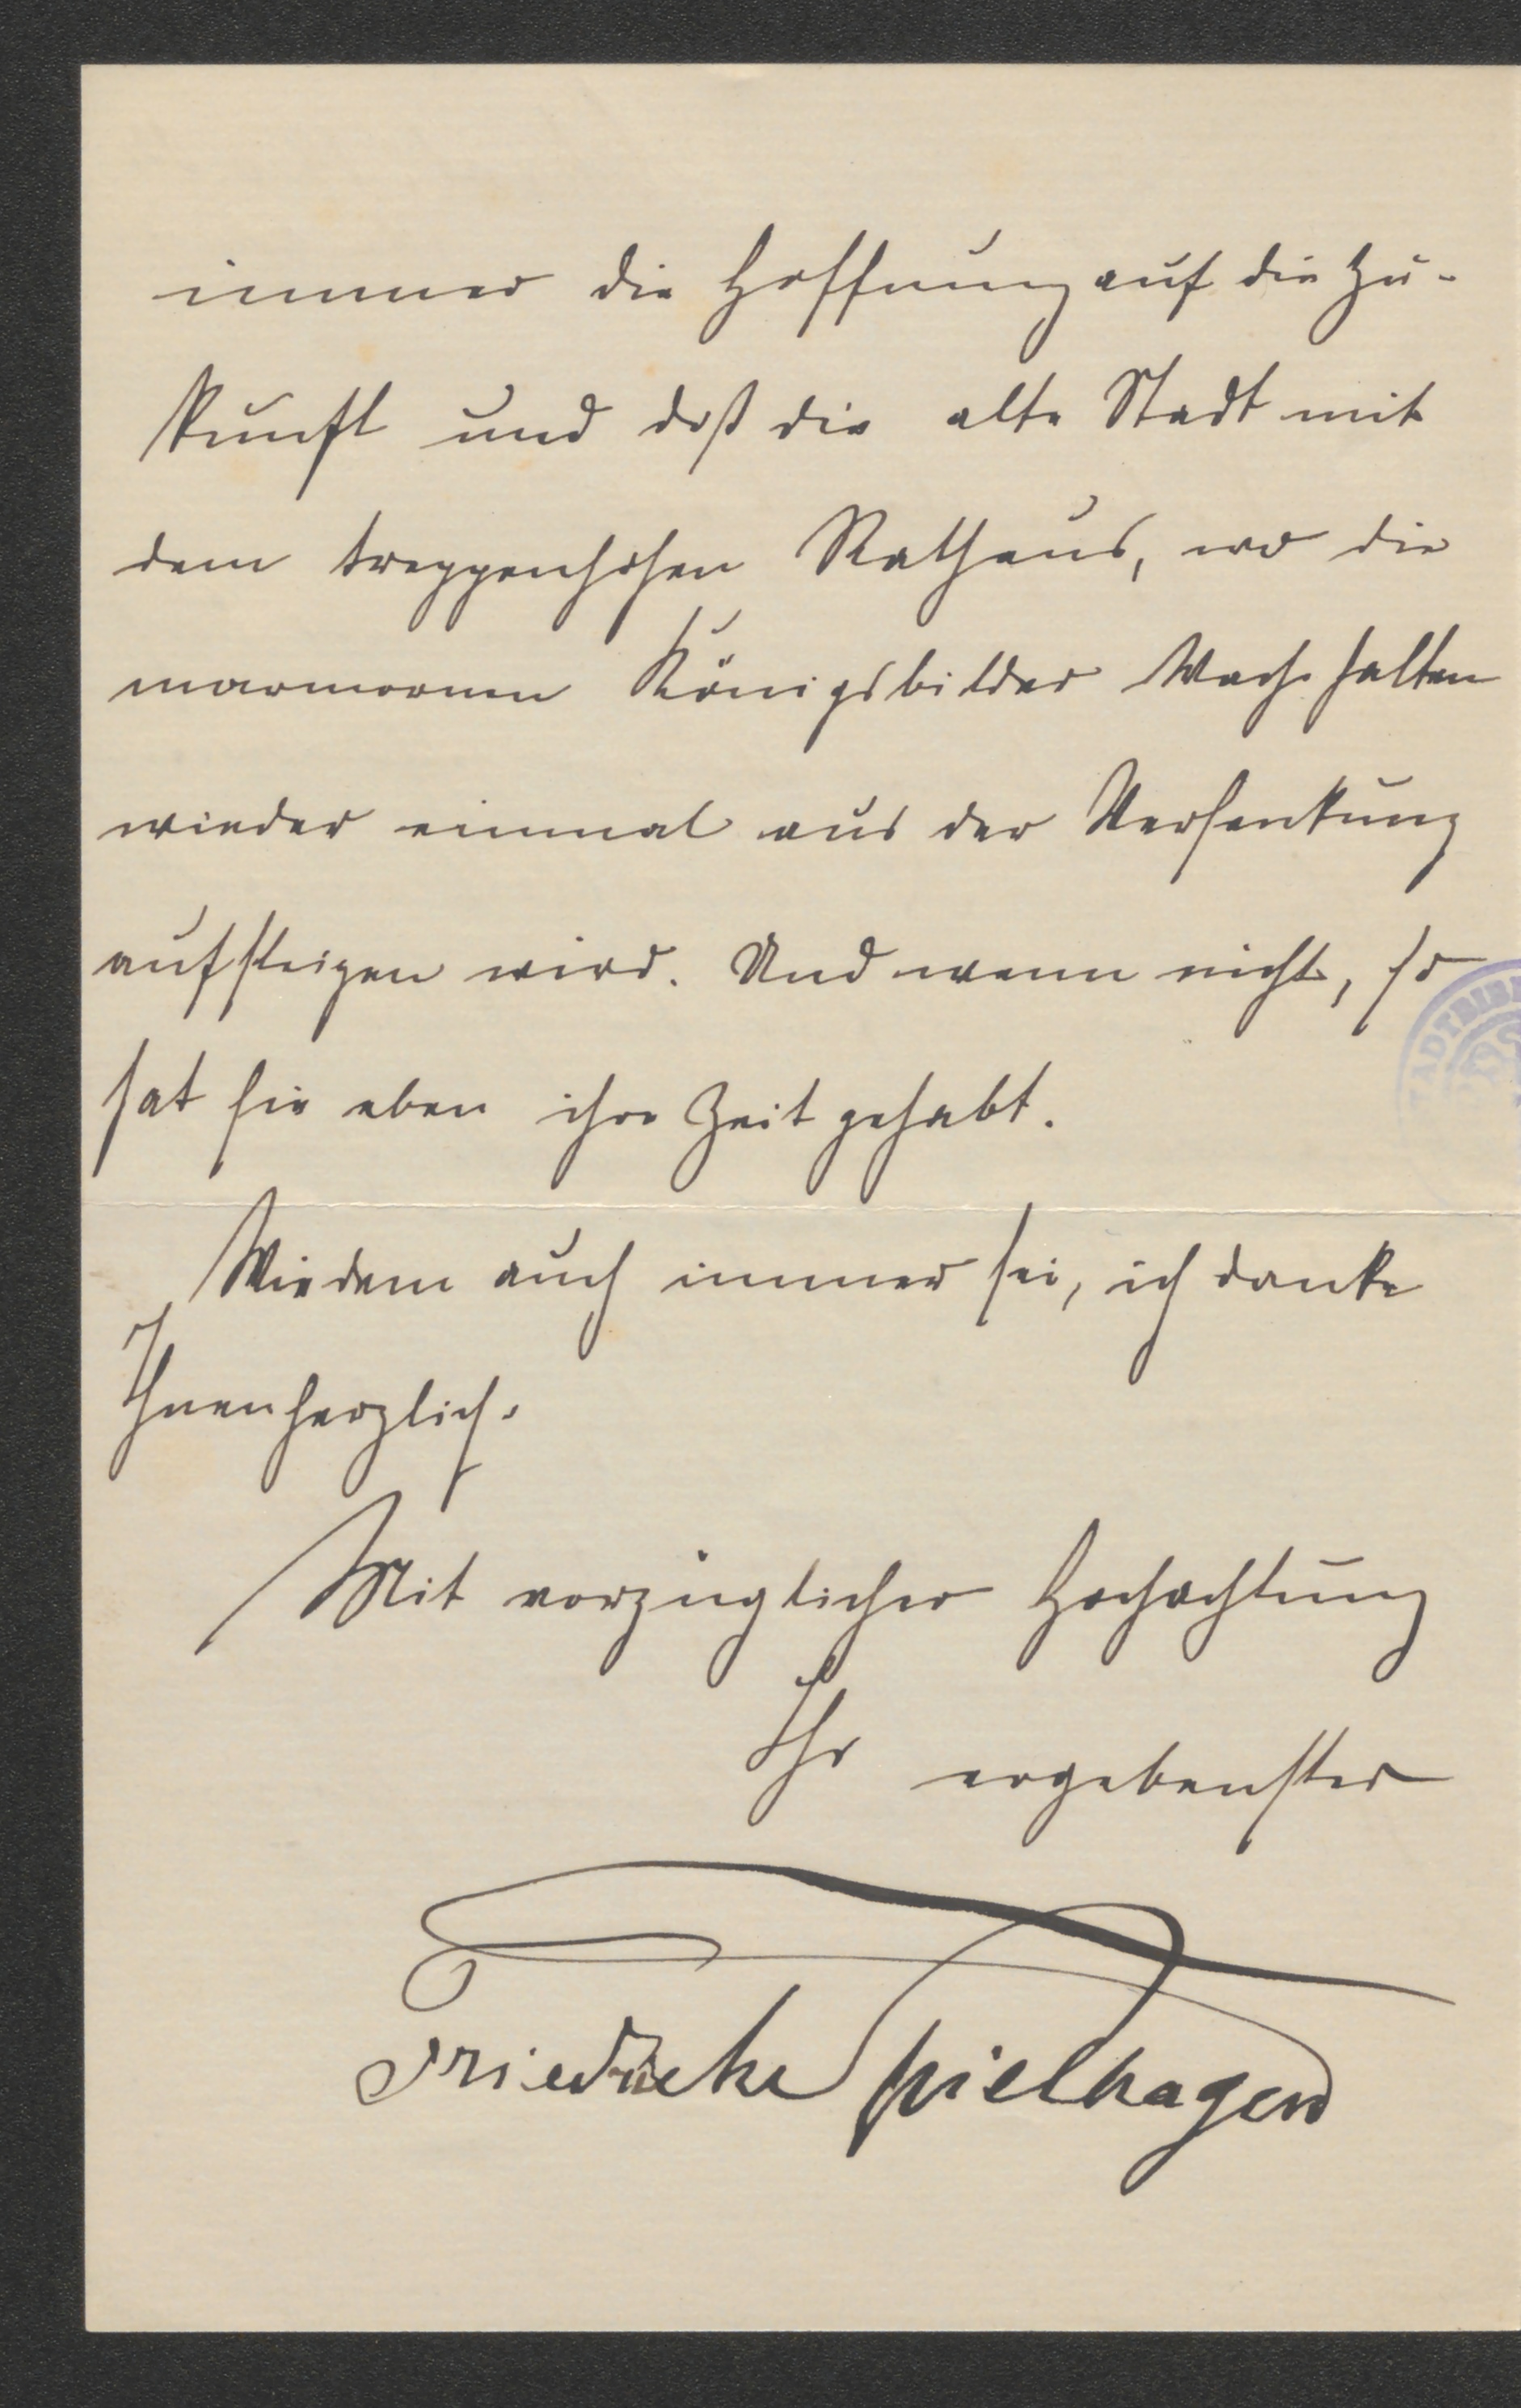 immer die Hoffnung auf die Zu-
kunft und daß die alte Stadt mit
dem treppenhohen Rathaus, wo die
marmornen Königsbilder Wache halten
wieder einmal aus der Versenkung
aufsteigen wird. Und wenn nicht, so
hat sie eben ihre Zeit gehabt.
Wie dem auch immer sei, ich danke
Ihnen herzlich.
Mit vorzüglicher Hochachtung
Ihr ergebenster
Friedrich Spielhagen